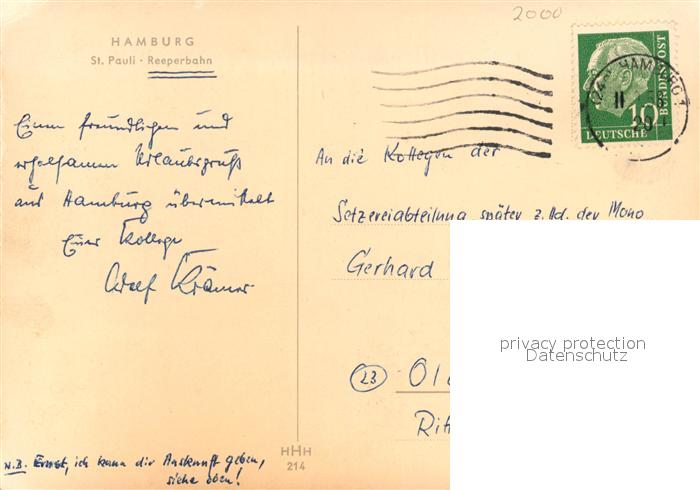 HAMBURG
St. Pauli · Reeperbahn
Einen freundlichen und
erholsamen Urlaubsgruß
aus Hamburg übermittelt
Euer Kollege
Adolf Krämer
N.B. Ernst, ich kann dir Auskunft geben,
siehe oben!
HHH
214
2000
(24a) HAMBURG 1
11
10
DEUTSCHE
BUNDESPOST
An die Kollegen der
Setzereiabteilung später z.Hd. der Mono
Gerhard
(23) Ol
Rit
privacy protection
Datenschutz